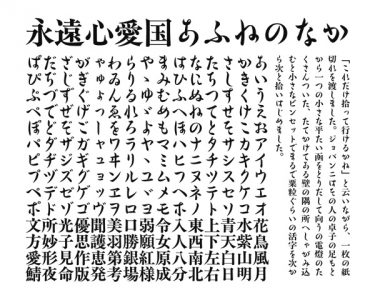 永遠心愛国あふねのなか
「これだけ拾って行けるかね」と云いながら、一枚の紙
切れを渡しました。ジョバンニはその人の卓子の足もと
から一つの小さな平たい函をとりだして向うの電燈のた
くさんついた、たてかけてある壁の隅の所へしゃがみ込
むと小さなピンセットでまるで粟粒ぐらいの活字を次か
ら次と拾いはじめました。
あいうえおアイウエオ花鳥風月
かきくけこカキクケコ水紫山明
さしすせそサシスセソ青天白日
たちつてとタチツテト上下左右
なにぬねのナニヌネノ東西南北
はひふへほハヒフヘホ入人八分
まみむめもマミムメモ令女原成
やゝゆゞよヤヽユヾヨ弱願紅様
らりるれろラリルレロ口勝銀場
わゐんゑをワヰンヱヲ美羽第考
ゃゅょっャュョッヴ聞護恵発
がぎぐげごガギグゲゴ優思作版
ざじずぜぞザジズゼゾ光子見命
だぢづでどダヂヅデド所明形夜
ぱぴぶべぽパピプペポ文方妙愛鯖